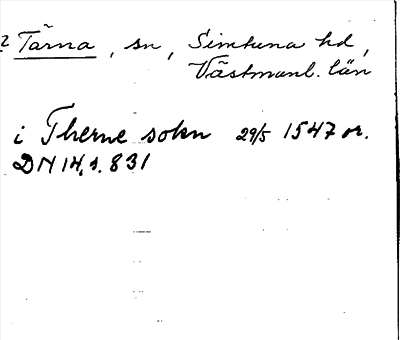 2 Tärna, sn, Simtuna hd,
Västmanl. län
i Therne sokn 29/5 1547 or.
DN 14, s. 831